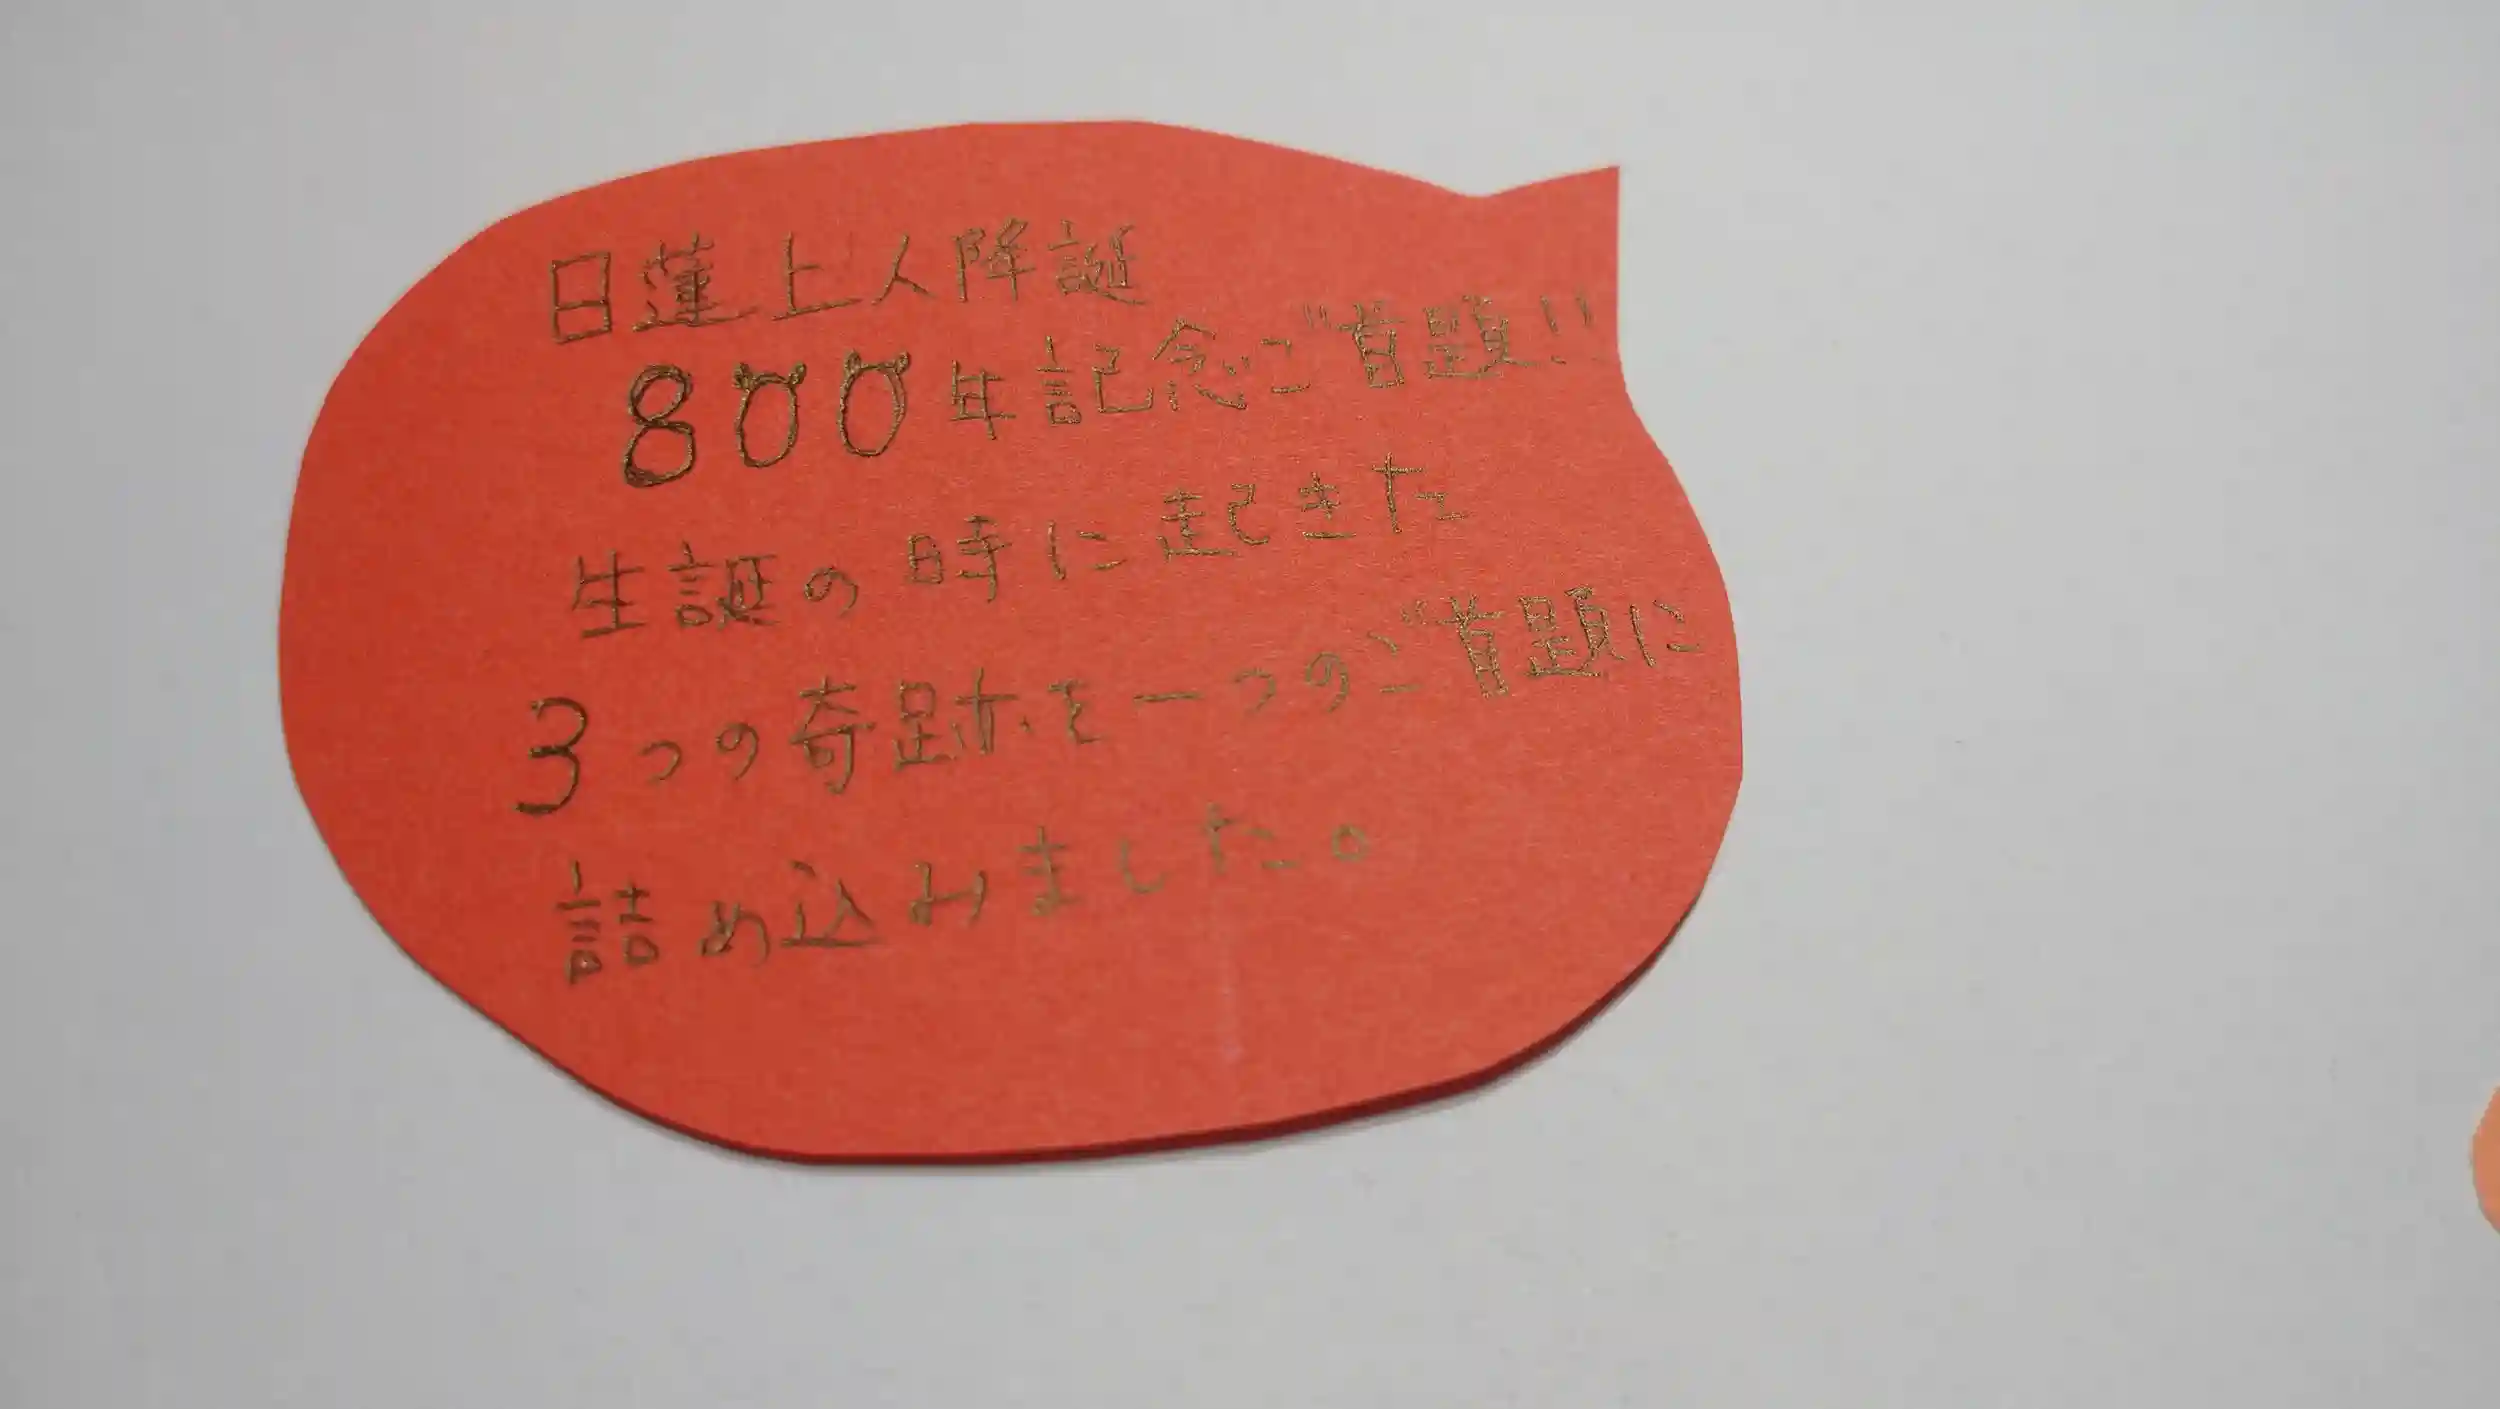 日蓮上人降誕
800年記念ご首題!!
生誕の時に起きた
3つの奇跡を一つのご首題に
詰め込みました。